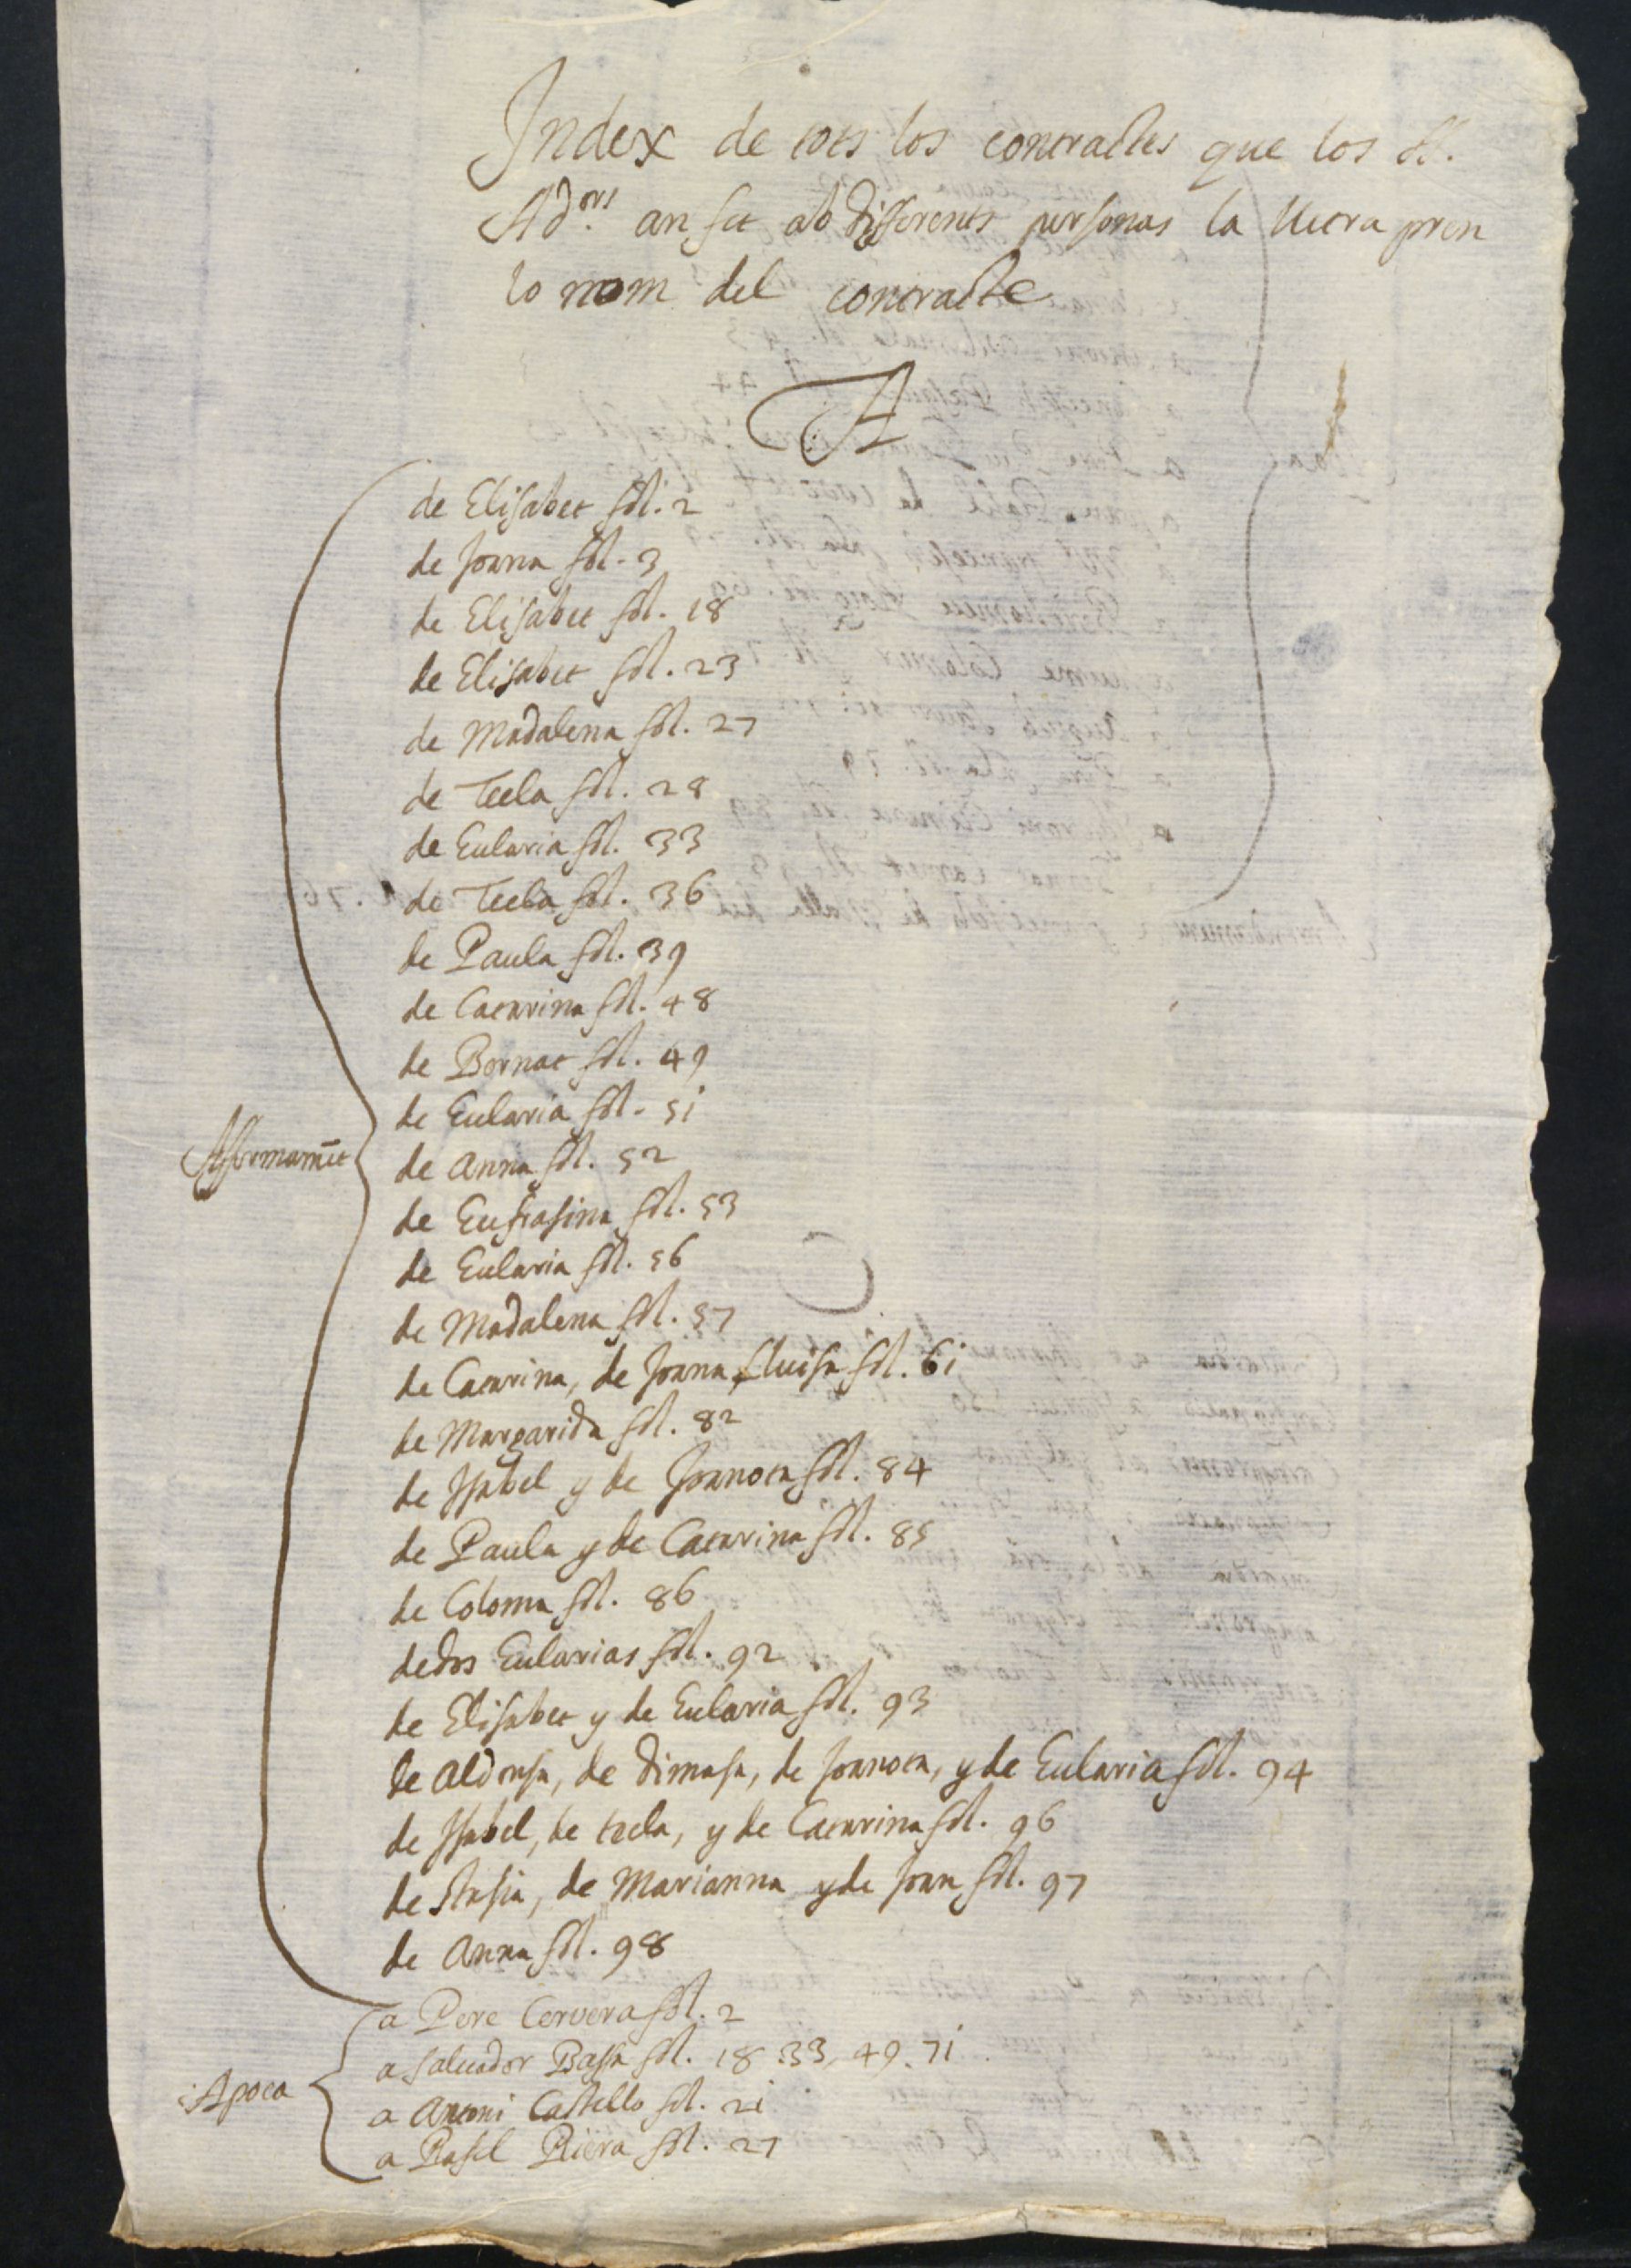 Index de tots los contractes que los SS.
Ad.ors an fet ab differents personas la lletra pren
lo nom del contracte
A
de Elisabet fol. 2
de Joana fol. 3
de Elisabet fol. 18
de Elisabet fol. 23
de Madalena fol. 27
de Tecla fol. 28
de Eularia fol. 33
de Tecla fol. 36
de Paula fol. 39
de Catarina fol. 48
de Bernat fol. 49
de Eularia fol. 51
Afermamēt
de Anna fol. 52
de Eufrasina fol. 53
de Eularia fol. 56
de Madalena fol. 57
de Catarina, de Joana Lluisa fol. 61
de Margarida fol. 82
de Isabel y de Joanota fol. 84
de Paula y de Catarina fol. 85
de Coloma fol. 86
de dos Eularias fol. 92
de Elisabet y de Eularia fol. 93
de Aldonsa, de Dimasa, de Joanota, y de Eularia fol. 94
de Isabel, de tecla, y de Catarina fol. 96
de Stasia, de Marianna y de Joan fol. 97
de Anna fol. 98
a Pere Cervera fol. 2
a salvador Bassa fol. 18. 33, 49. 71
Apoca
a Antoni Castello fol. 21
a Rafel Riera fol. 27